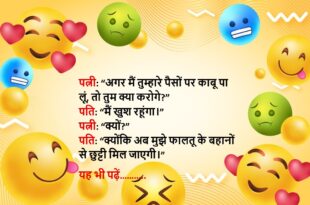 पत्नी: “अगर मैं तुम्हारे पैसों पर काबू पा
लूं, तो तुम क्या करोगे?”
पति: “मैं खुश रहूंगा।”
पत्नी: “क्यों?”
पति: “क्योंकि अब मुझे फालतू के बहानों
से छुट्टी मिल जाएगी।”
यह भी पढ़ें...........